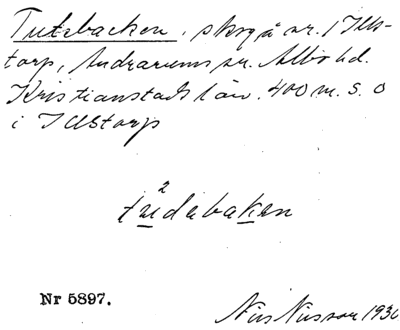 Tutabacken, skog å nr. 1 Ills-
torp, Andrarums sn. Albo hd.
Kristianstads län. 400 m. S. O
i Illstorp
tudabaken
Nr 5897.
Nils Nilsson 1930